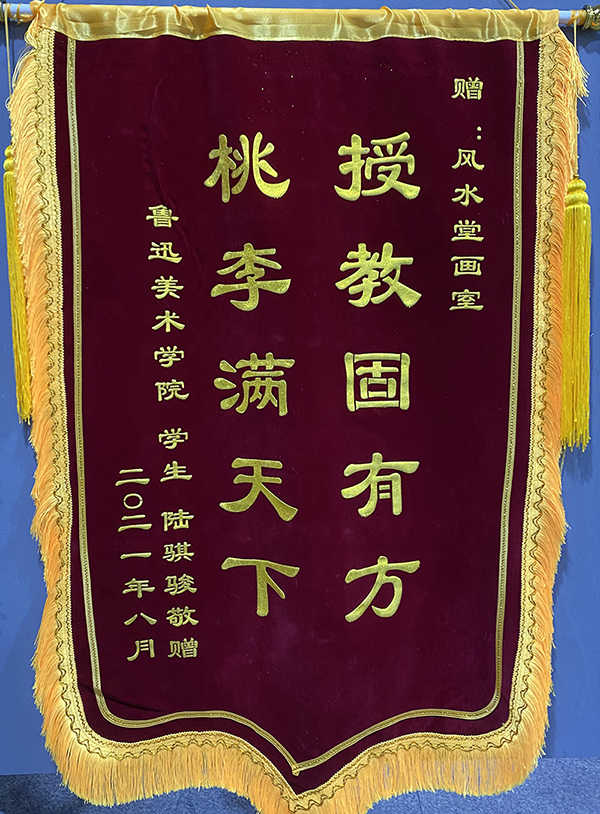 赠：风水堂画室
授教固有方
桃李满天下
鲁迅美术学院 学生 陆骐骏敬赠
二〇二一年八月